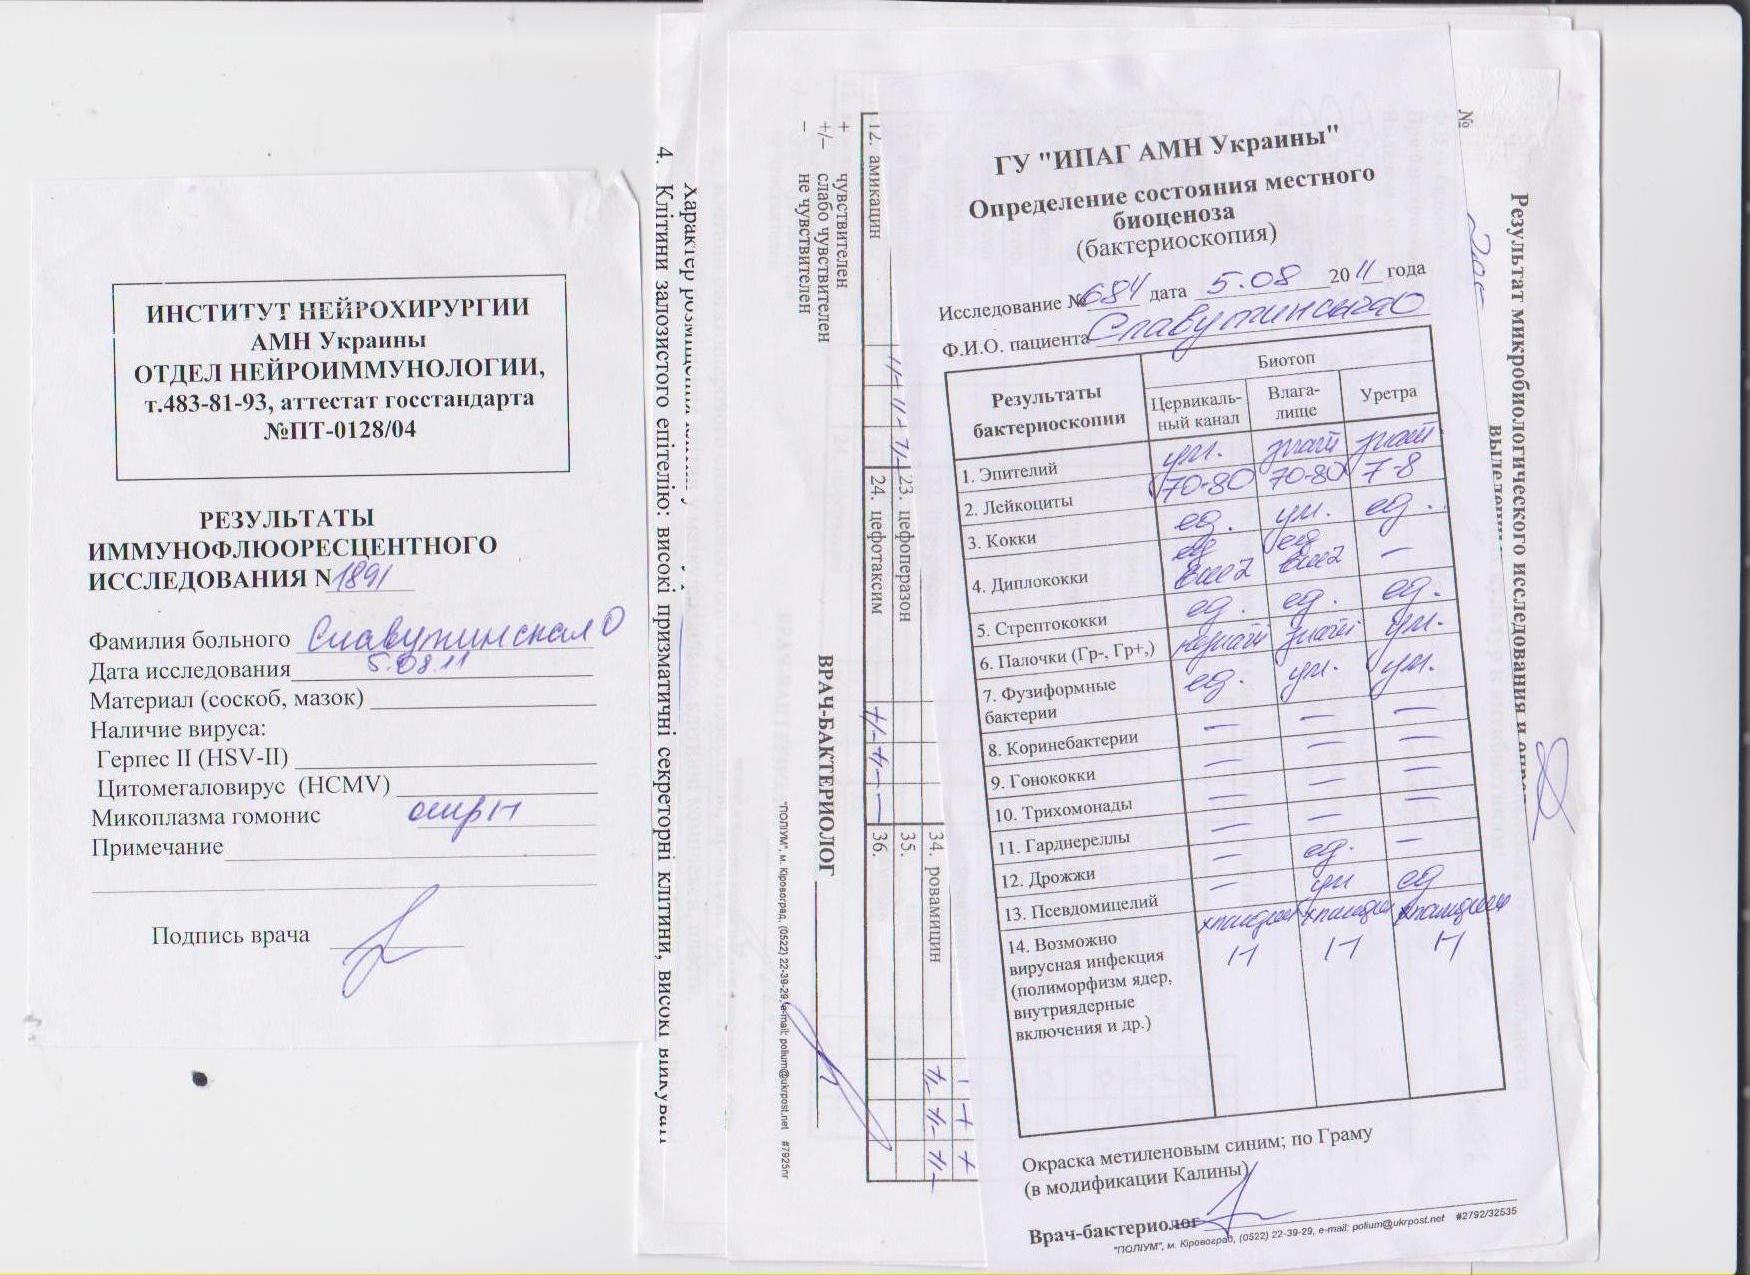 ИНСТИТУТ НЕЙРОХИРУРГИИ
АМН Украины
ОТДЕЛ НЕЙРОИММУНОЛОГИИ,
т.483-81-93, аттестат госстандарта
№ПТ-0128/04
РЕЗУЛЬТАТЫ
ИММУНОФЛЮОРЕСЦЕНТНОГО
ИССЛЕДОВАНИЯ N 1891
Фамилия больного Славутинская О
Дата исследования 5.08.11
Материал (соскоб, мазок)
Наличие вируса:
Герпес II (HSV-II)
Цитомегаловирус (HCMV)
Микоплазма гомонис
Примечание
Подпись врача
4. Клітини залозистого епітелію: високі призматичні секреторні клітини, високі
+ чувствителен
+/– слабо чувствителен
– не чувствителен
12. амикацин
23. цефоперазон
24. цефотаксим
34. ровамицин
35.
36.
ВРАЧ-БАКТЕРИОЛОГ
"ПОЛІУМ", м. Кіровоград, (0522) 22-39-29, e-mail: polium@ukrpost.net #7925пг
ГУ "ИПАГ АМН Украины"
Определение состояния местного
биоценоза
(бактериоскопия)
Исследование № 684 дата 5.08 2011 года
Ф.И.О. пациента Славутинская О
Результаты бактериоскопии
Биотоп
Цервикаль-ный канал Влага-лище Уретра
1. Эпителий ум. знач знач
2. Лейкоциты 70-80 70-80 7-8
3. Кокки ед. ум. ед.
4. Диплококки ед ед –
5. Стрептококки ед. ед. ед.
6. Палочки (Гр-, Гр+,) знач ум.
7. Фузиформные бактерии ед. ум. ум.
8. Коринебактерии – – –
9. Гонококки – – –
10. Трихомонады – – –
11. Гарднереллы – – –
12. Дрожжи – ед. –
13. Псевдомицелий – ум ед
14. Возможно
вирусная инфекция
(полиморфизм ядер,
внутриядерные
включения и др.)
Окраска метиленовым синим; по Граму
(в модификации Калины)
Врач-бактериолог
"ПОЛІУМ", м. Кіровоград, (0522) 22-39-29, e-mail: polium@ukrpost.net #2792/32535
№
Результат микробиологического исследования и